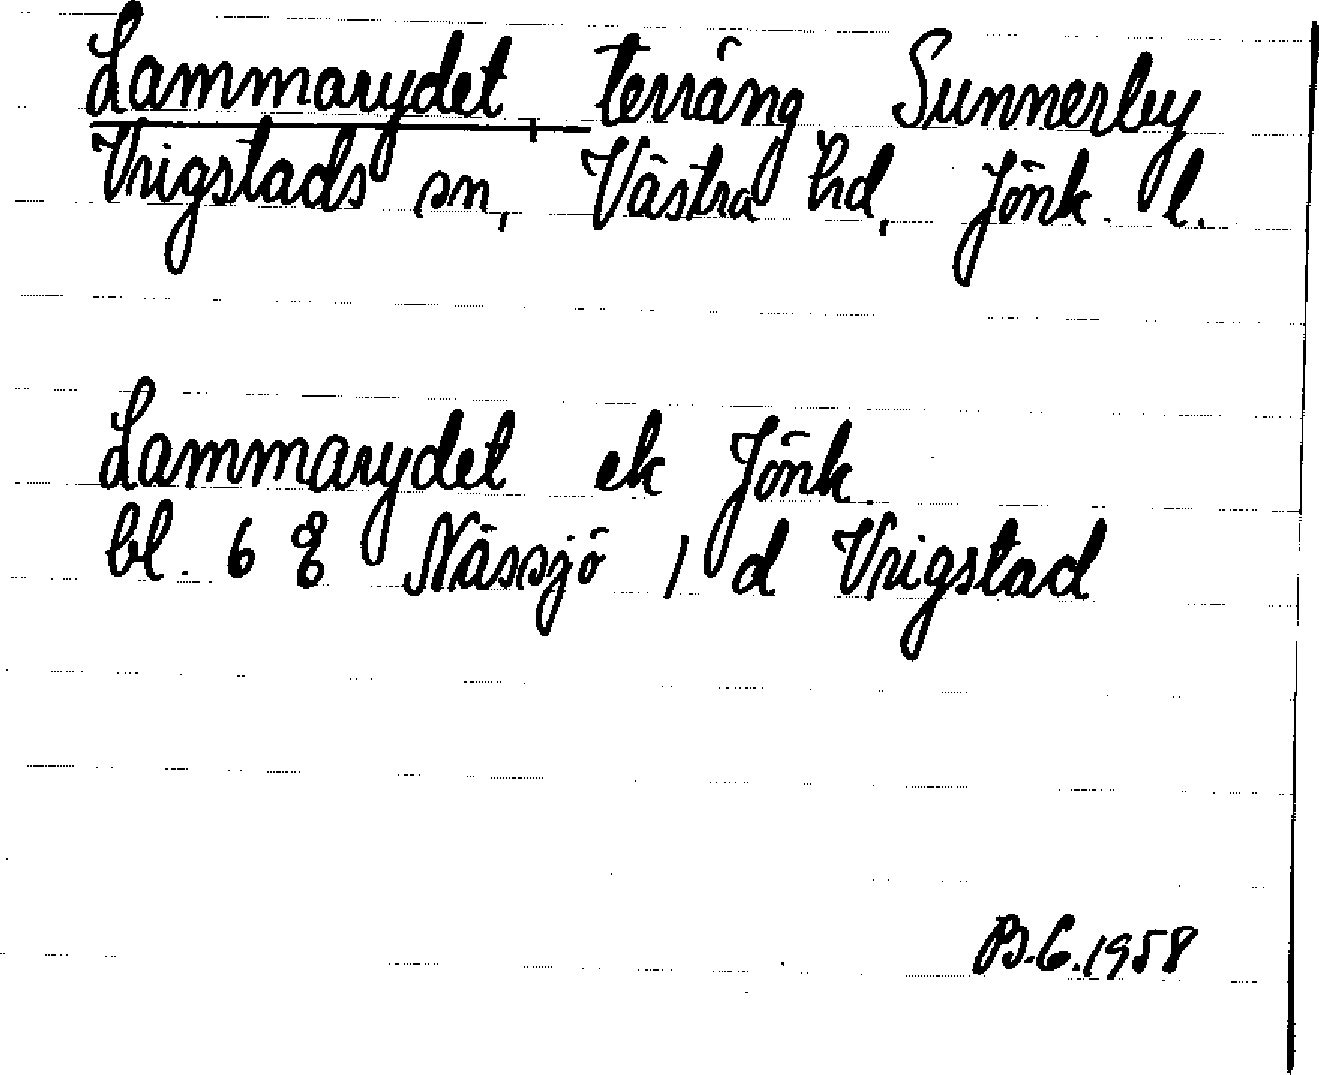 Lammarydet, terräng Sunnerby
Vrigstads sn, Västra hd, Jönk. l.
Lammarydet ek Jönk.
bl. 6 E Nässjö 1 d Vrigstad
B.G.1958